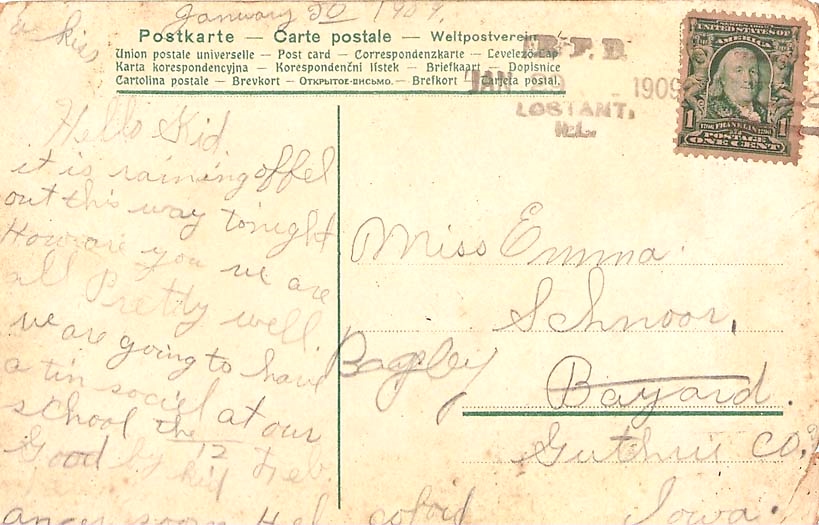 January 20 1909.
a kiss
Postkarte — Carte postale — Weltpostverein
Union postale universelle — Post card — Correspondenzkarte — Levelező-Lap
Karta korespondencyjna — Korespondenční lístek — Briefkaart — Dopisnice
Cartolina postale — Brevkort — Открытое письмо. — Brefkort — Tarjeta postal.
R.F.D.
JAN 29 - 1909
LOSTANT,
ILL.
UNITED STATES OF AMERICA
1 FRANKLIN 1
POSTAGE
ONE CENT
Hello Kid.
it is raining offel
out this way tonight
How are you we are
all Pretty well.
we are going to have
a tin social at our
school the 12 Feb
Good by kid
soon
Miss Emma
Schnoor,
Bagley
Bayard.
Guthrie Co.
Iowa.